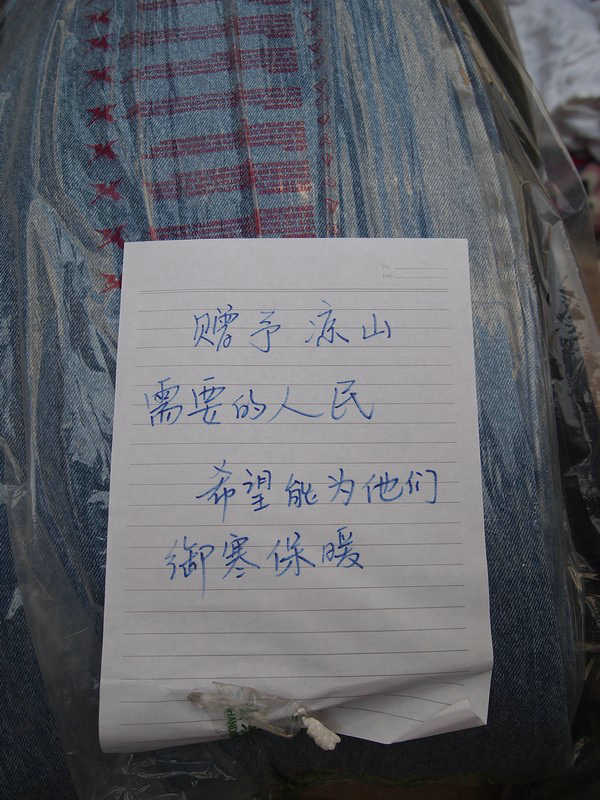 赠予凉山
需要的人民
希望能为他们
御寒保暖